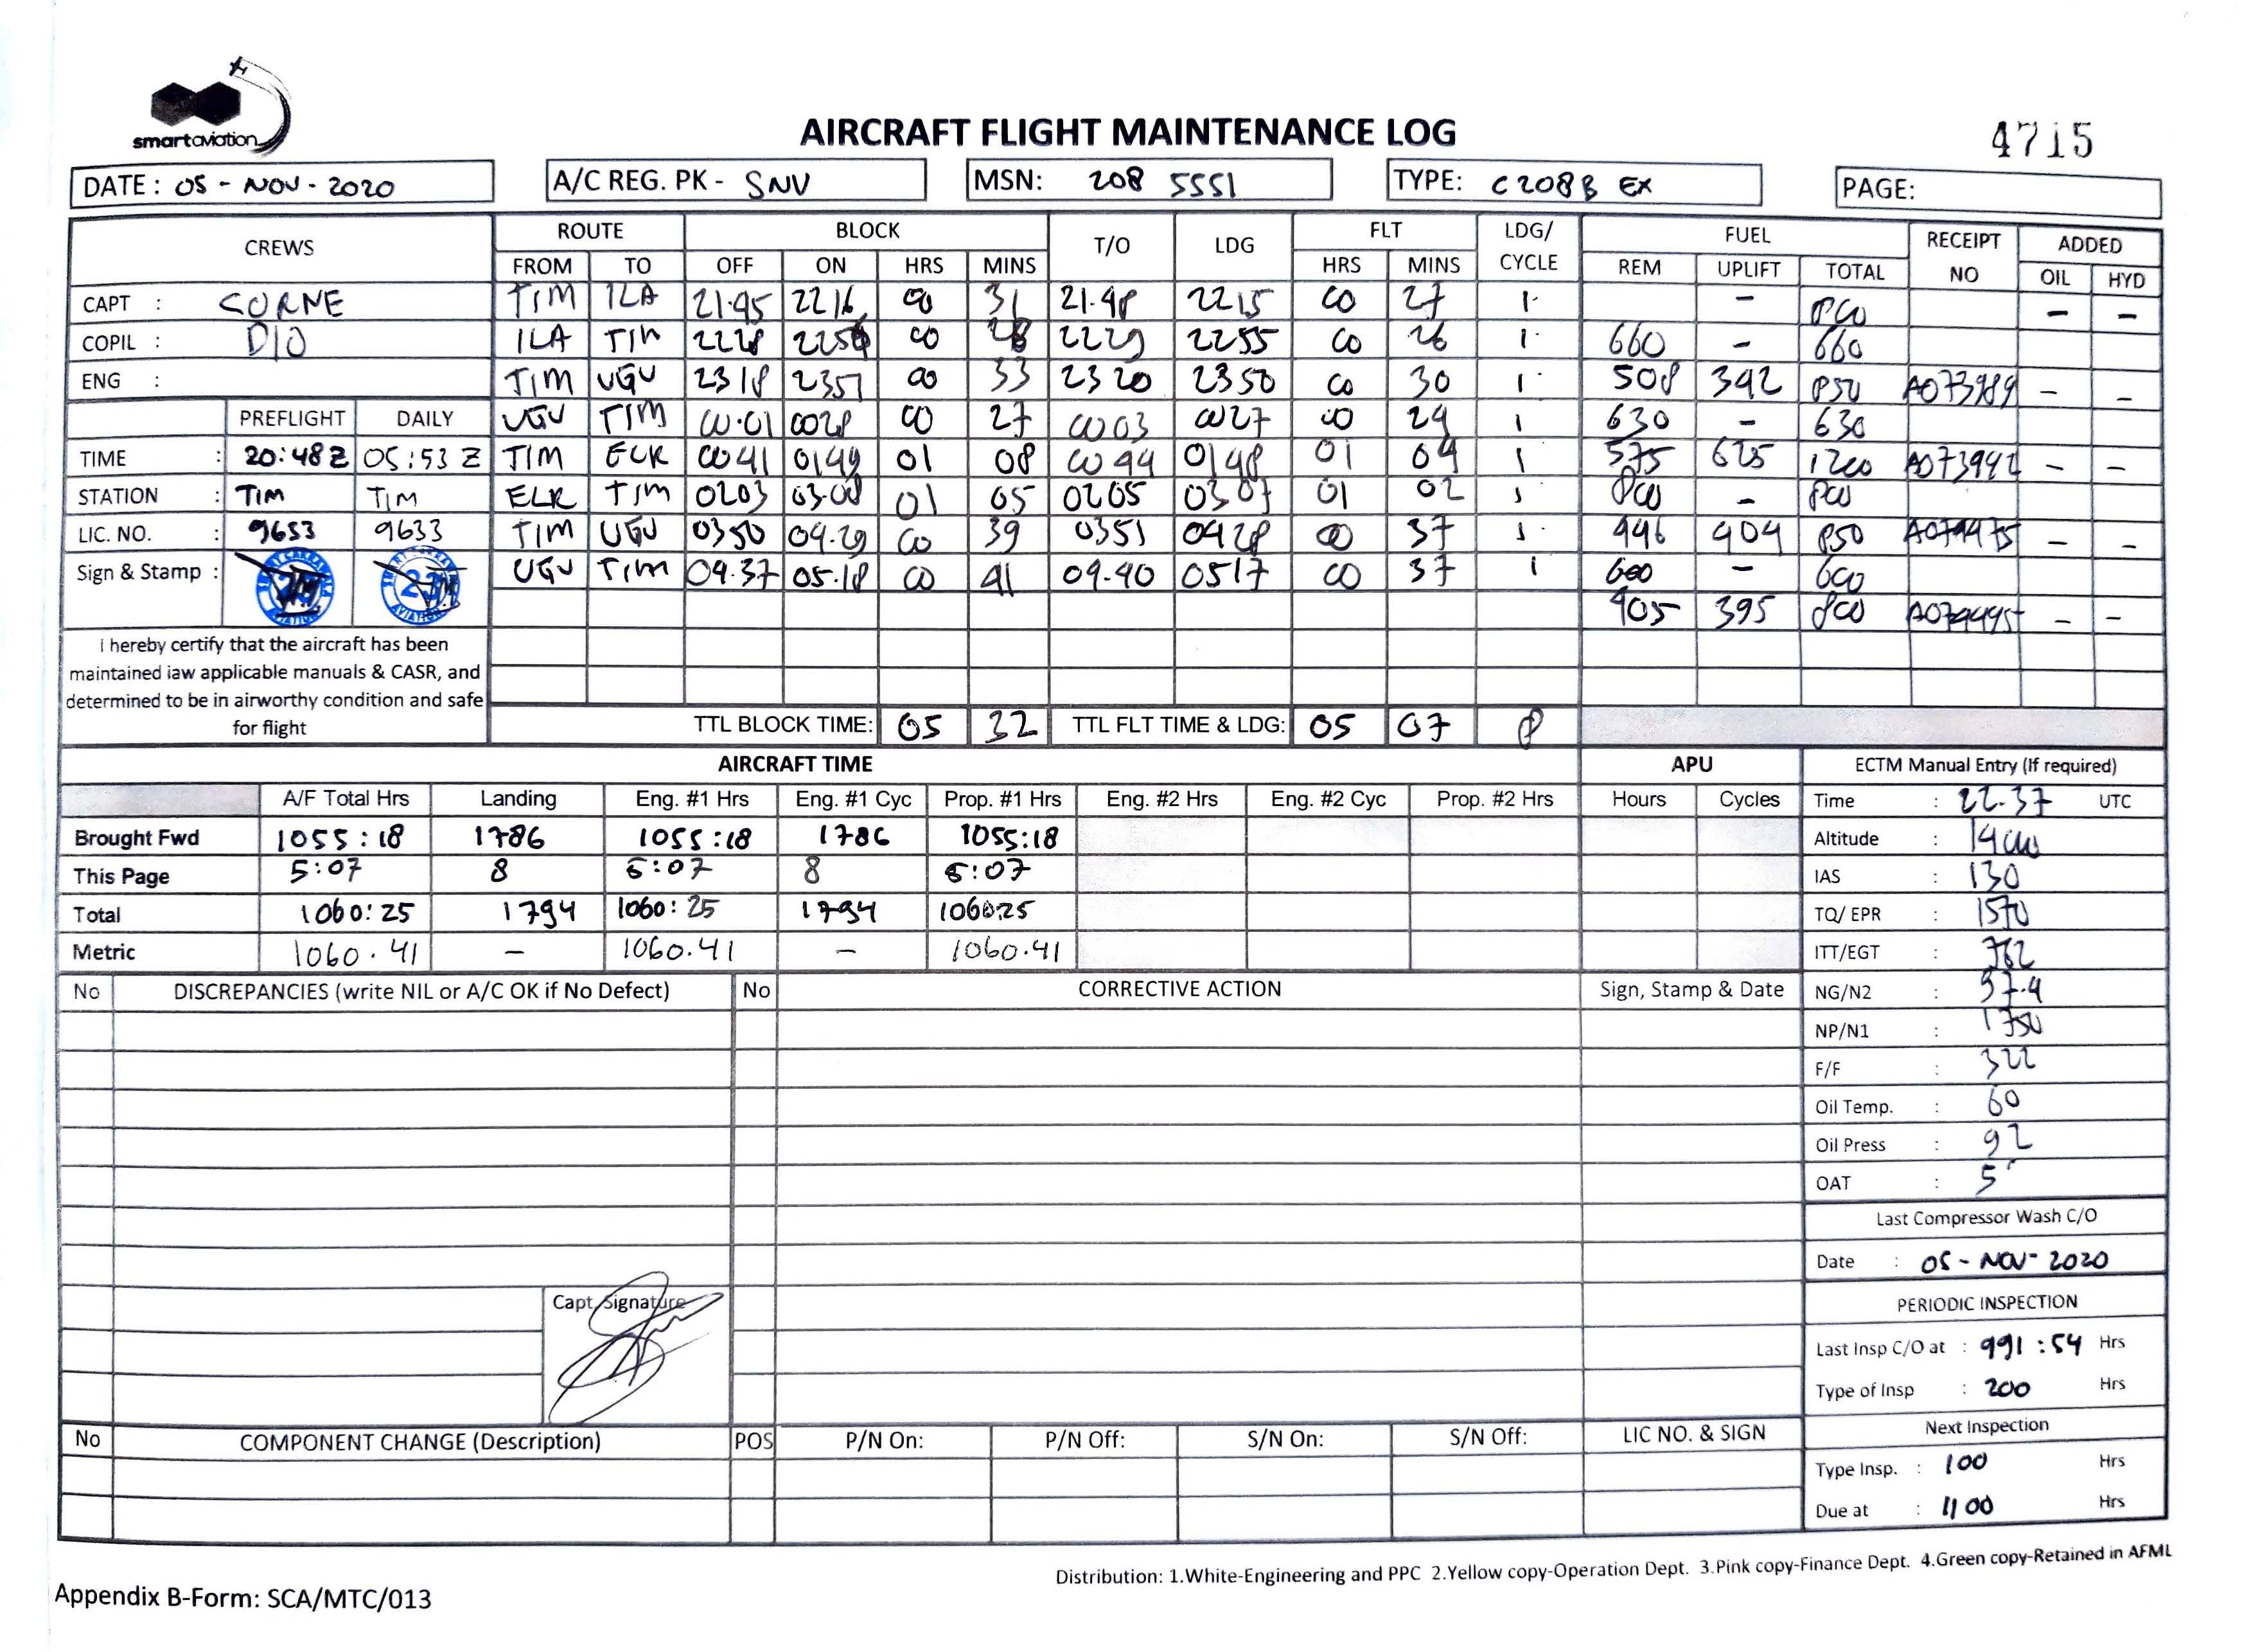 smartaviation
AIRCRAFT FLIGHT MAINTENANCE LOG
4715
DATE : 05 - NOV - 2020 A/C REG. PK - SNV MSN: 208 5551 TYPE: C208B EX PAGE:
CREWS ROUTE BLOCK T/O LDG FLT LDG/ CYCLE FUEL RECEIPT NO ADDED
FROM TO OFF ON HRS MINS HRS MINS REM UPLIFT TOTAL OIL HYD
CAPT : CORNE TIM ILA 21.45 2216 00 31 21.48 2215 00 27 1 - 800 - -
COPIL : DIO ILA TIM 2228 2256 00 28 2229 2255 00 26 1 660 - 660
ENG : TIM UGU 2318 2351 00 33 2320 2350 00 30 1 508 342 850 A073989 - -
PREFLIGHT DAILY UGU TIM 00.01 0028 00 27 0003 0027 00 24 1 630 - 630
TIME : 20:48Z 05:53 Z TIM ELR 0041 0149 01 08 0044 0148 01 04 1 575 625 1200 - -
STATION : TIM TIM ELR TIM 0203 03.08 01 05 0205 0307 01 02 1 800 - 800
LIC. NO. : 9633 9633 TIM UGU 0350 04.29 00 39 0351 0428 00 37 1 446 404 850 - -
Sign & Stamp : UGU TIM 04.37 05.18 00 41 04.40 0517 00 37 1 600 - 600
405 395 800 - -
I hereby certify that the aircraft has been
maintained iaw applicable manuals & CASR, and
determined to be in airworthy condition and safe
for flight
TTL BLOCK TIME: 05 32 TTL FLT TIME & LDG: 05 07 8
AIRCRAFT TIME APU ECTM Manual Entry (If required)
A/F Total Hrs Landing Eng. #1 Hrs Eng. #1 Cyc Prop. #1 Hrs Eng. #2 Hrs Eng. #2 Cyc Prop. #2 Hrs Hours Cycles Time : 22.37 UTC
Brought Fwd 1055:18 1786 1055:18 1786 1055:18 Altitude :
This Page 5:07 8 5:07 8 5:07 IAS : 130
Total 1060:25 1794 1060:25 1794 1060:25 TQ/ EPR : 1570
Metric 1060.41 - 1060.41 - 1060.41 ITT/EGT : 762
No DISCREPANCIES (write NIL or A/C OK if No Defect) No CORRECTIVE ACTION Sign, Stamp & Date NG/N2 : 97.4
NP/N1 : 1750
F/F : 322
Oil Temp. : 60
Oil Press : 92
OAT : 5
Last Compressor Wash C/O
Date : 05 - NOV - 2020
Capt. Signature
PERIODIC INSPECTION
Last Insp C/O at : 991:54 Hrs
Type of Insp : 200 Hrs
No COMPONENT CHANGE (Description) POS P/N On: P/N Off: S/N On: S/N Off: LIC NO. & SIGN Next Inspection
Type Insp. : 100 Hrs
Due at : 1100 Hrs
Distribution: 1.White-Engineering and PPC 2.Yellow copy-Operation Dept. 3.Pink copy-Finance Dept. 4.Green copy-Retained in AFML
Appendix B-Form: SCA/MTC/013